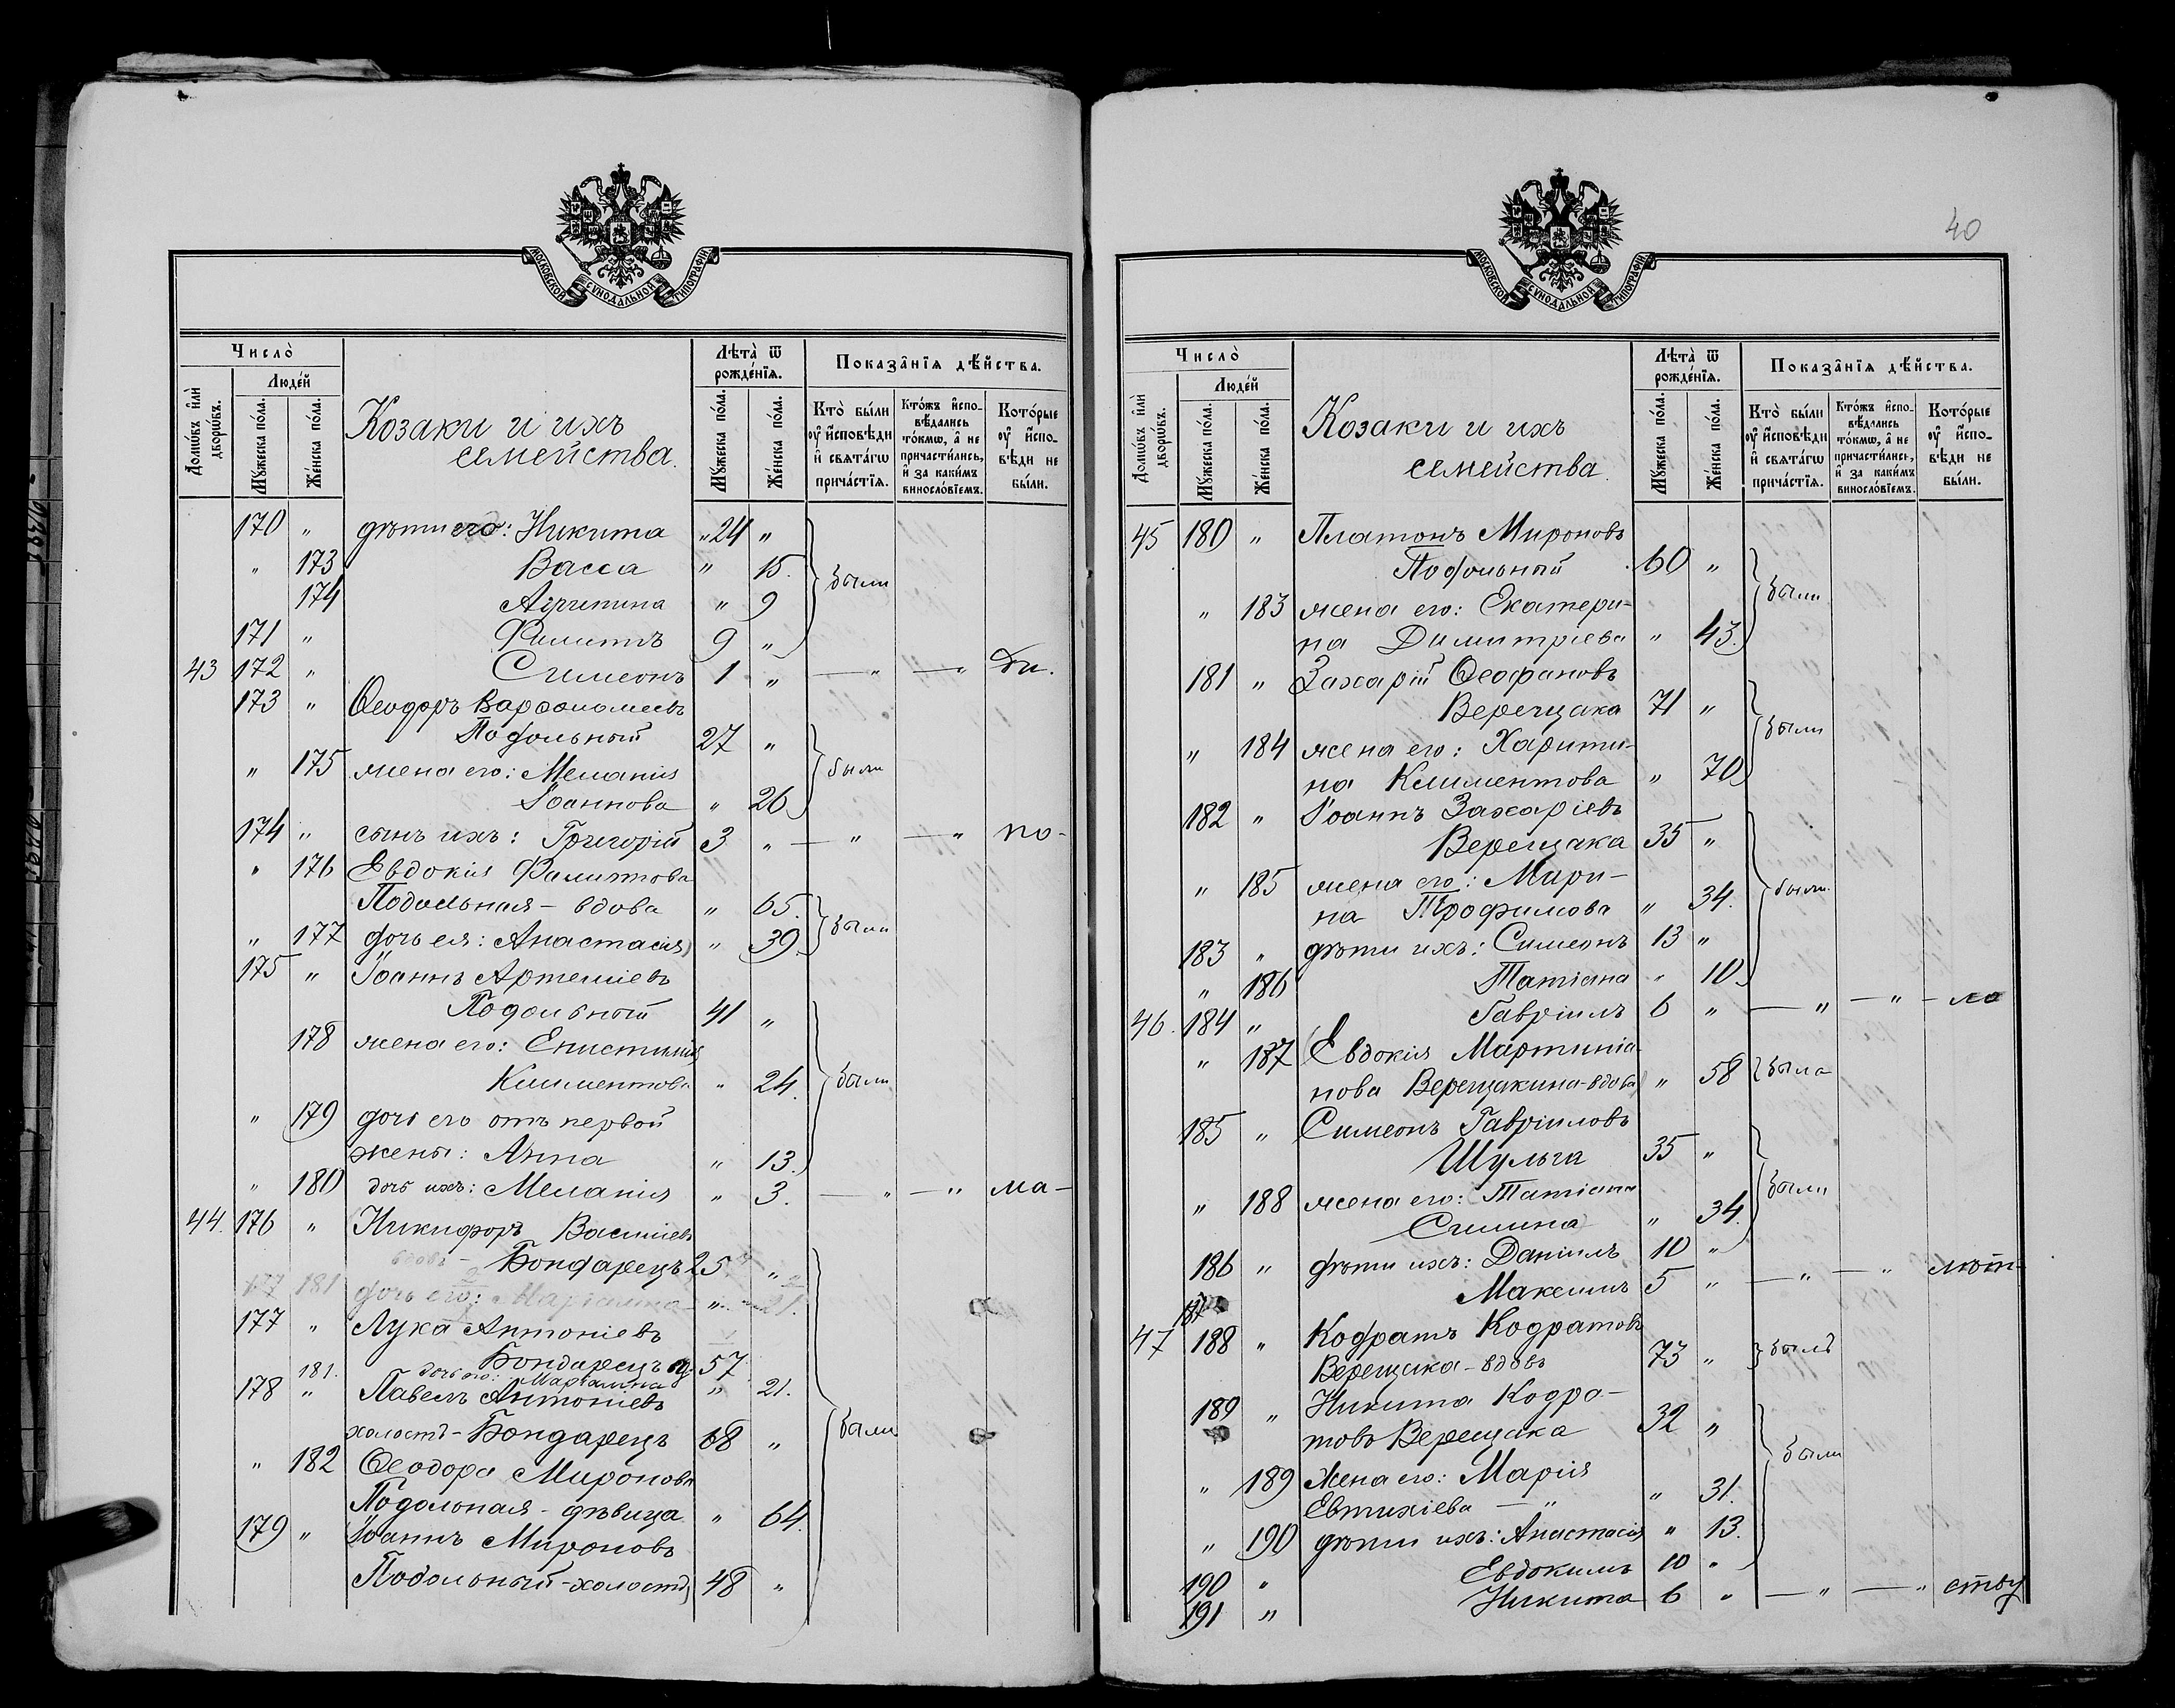 МОСКОВСКОЙ СУНОДАЛЬНОЙ ТИПОГРАФІИ
Число̀
Людей
Домѡвъ и҆лѝ дворѡвъ.
Мꙋжеска по́ла.
Же́нска по́ла.
Козаки и ихъ
семейства.
Лѣта̀ ѿ рожде́нїѧ.
Мꙋжеска по́ла.
Же́нска по́ла.
Показа̑нїѧ дѣ́йства.
Кто̀ бы́ли ᲂу҆ и҆сповѣди и҆ свѧта́гѡ прича́стїѧ.
Кто́жъ и҆спо-вѣдались то́кмѡ, а҆ не причасти́лись, и҆ за каки́мъ винословїемъ.
Кото́рые ᲂу҆ и҆спо-вѣди не бы́ли.
170 „ дѣти его: Никита „ 24 „
„ 173 Васса „ 15. были
174 Агрипина „ 9
171 „ Филиппъ 9 „
43 172 „ Симеонъ 1 „ — „ — „ Ѳи.
173 „ Ѳеодоръ Варѳоломеевъ
Подольный 27 „
„ 175 жена его: Меланія были
Іоаннова „ 26
174 „ сынъ ихъ: Григорій 3 „ — „ — „ по-
„ 176 Евдокія Филиппова
Подольная - вдова „ 65.
„ 177 дочь ея: Анастасія „ 39. были
175 „ Іоаннъ Артеміевъ
Подольный 41 „
178 жена его: Епистимія
Климентова „ 24. были
„ 179 дочь его отъ первой
жены: Анна „ 13.
„ 180 дочь ихъ: Меланія „ 3. — „ — „ ма-
44. 176 „ Никифоръ Василіевъ
вдовъ - Бондарецъ 25 „
177 181 дочь его: „ 21.
177 „ Лука Антоніевъ
Бондарецъ 57
181. дочь его: „ 21.
178 „ Павелъ Антоніевъ
холостъ - Бондарецъ 68 „ были
„ 182 Ѳеодора Миронова
Подольная - дѣвица „ 64.
179 „ Іоаннъ Мироновъ
Подольный - холостъ 48 „
40
МОСКОВСКОЙ СУНОДАЛЬНОЙ ТИПОГРАФІИ
Число̀
Людей
Домѡвъ и҆лѝ дворѡвъ.
Мꙋжеска по́ла.
Же́нска по́ла.
Козаки и ихъ
семейства.
Лѣта̀ ѿ рожде́нїѧ.
Мꙋжеска по́ла.
Же́нска по́ла.
Показа̑нїѧ дѣ́йства.
Кто̀ бы́ли ᲂу҆ и҆сповѣди и҆ свѧта́гѡ прича́стїѧ.
Кто́жъ и҆спо-вѣдались то́кмѡ, а҆ не причасти́лись, и҆ за каки́мъ винословїемъ.
Кото́рые ᲂу҆ и҆спо-вѣди не бы́ли.
45 180 „ Платонъ Мироновъ
Подольный 60 „
„ 183 жена его: Екатери- были
на Димитріева „ 43.
181 „ Захарій Ѳеофановъ
Верещака 71 „
„ 184 жена его: Харити- были
на Климентова „ 70
182 „ Іоаннъ Захаріевъ
Верещака 35 „
„ 185 жена его: Мари- были
на Трофимова „ 34.
183 „ дѣти ихъ: Симеонъ 13 „
„ 186 Татіана „ 10
46. 184 „ Гавріилъ 6 „ — „ — „ ло
„ 187 Евдокія Мартиніа-
нова Верещакина - вдова „ 58 была
185 „ Симеонъ Гавріиловъ
Шульга 35 „
„ 188 жена его: Татіана были
Симина „ 34.
186 „ дѣти ихъ: Даніилъ 10 „
187 Максимъ 5 „ — „ — „ лѣт-
47 188 „ Кодратъ Кодратовъ
Верещака - вдовъ 73 „ былъ
189 „ Никита Кодра-
товъ Верещака 32 „
„ 189 Жена его: Марія были
Евтихіева — „ „ 31.
„ 190 дѣти ихъ: Анастасія „ 13.
190 „ Евдокимъ 10 „
191 „ Никита 6 „ — „ — „ ству